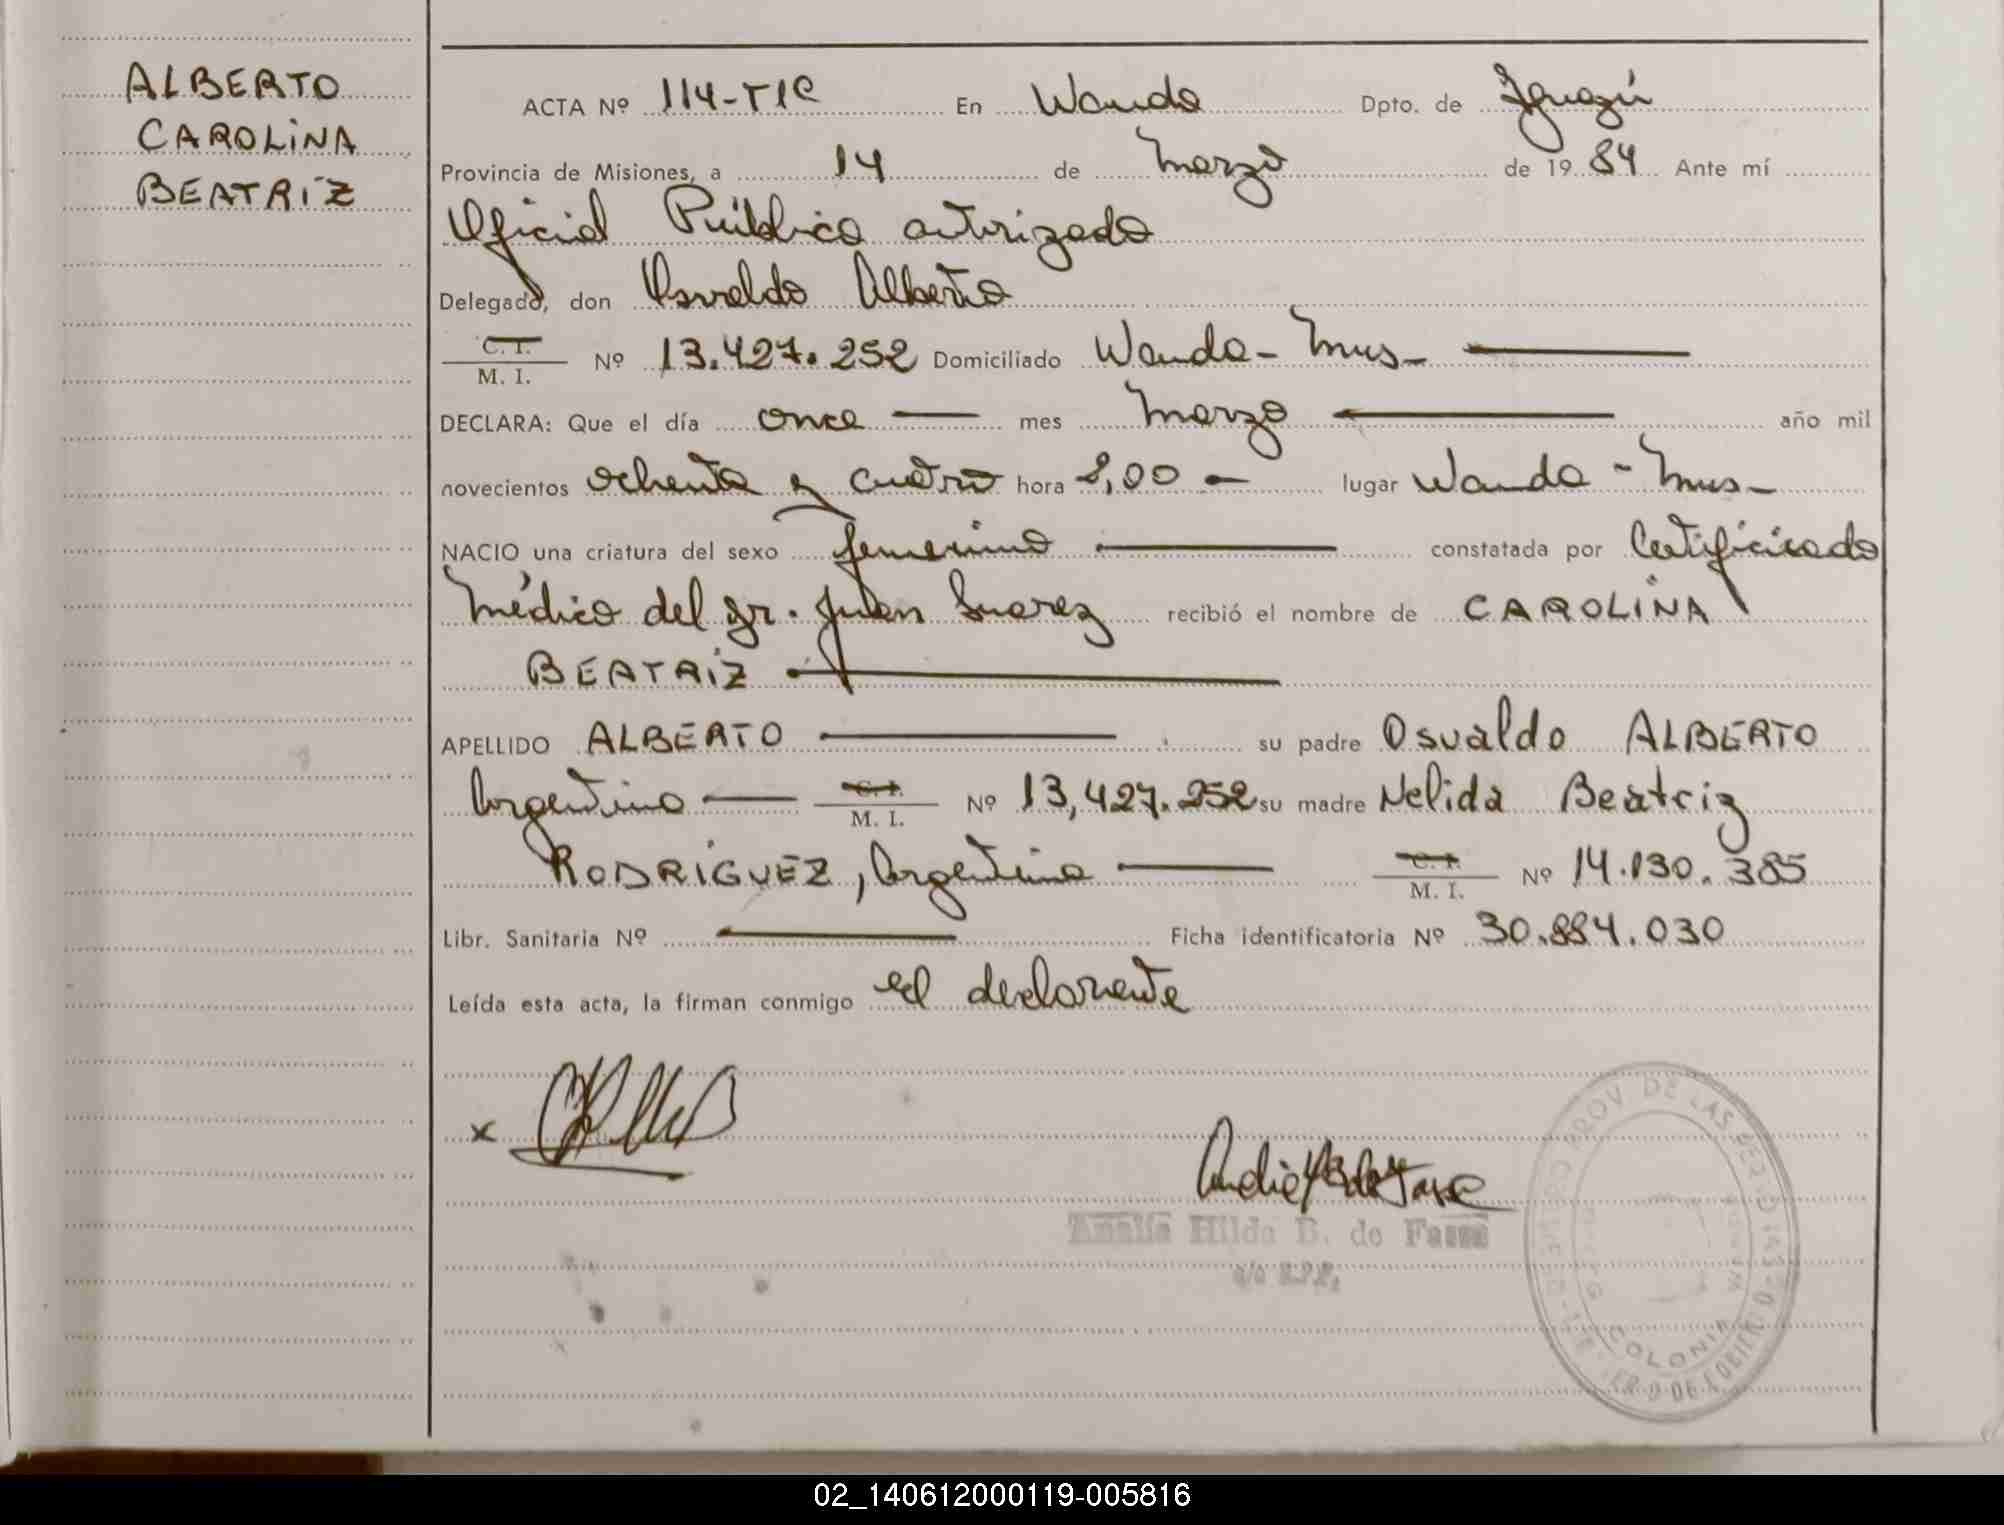 ALBERTO
CAROLINA
BEATRIZ
ACTA Nº 114-T1C En Wanda Dpto. de Iguazú
Provincia de Misiones, a 14 de Marzo de 1984 Ante mí
Oficial Público autorizado
Delegado, don Osvaldo Alberto
C. I.
M. I. Nº 13.427.252 Domiciliado Wanda - Mnes -
DECLARA: Que el día once mes Marzo año mil
novecientos ochenta y cuatro hora 8,00 - lugar Wanda - Mnes -
NACIO una criatura del sexo femenino constatada por Certificado
Médico del Dr. Juan Suarez recibió el nombre de CAROLINA
BEATRIZ
APELLIDO ALBERTO su padre Osvaldo ALBERTO
Argentino C. I.
M. I. Nº 13,427.252 su madre Nelida Beatriz
RODRIGUEZ, Argentina C. I.
M. I. Nº 14.130.385
Libr. Sanitaria Nº Ficha identificatoria Nº 30.884.030
Leída esta acta, la firman conmigo el declarante
x
Hilda B. de
COLONIA
PROV. DE LAS PERSONAS
02_140612000119-005816